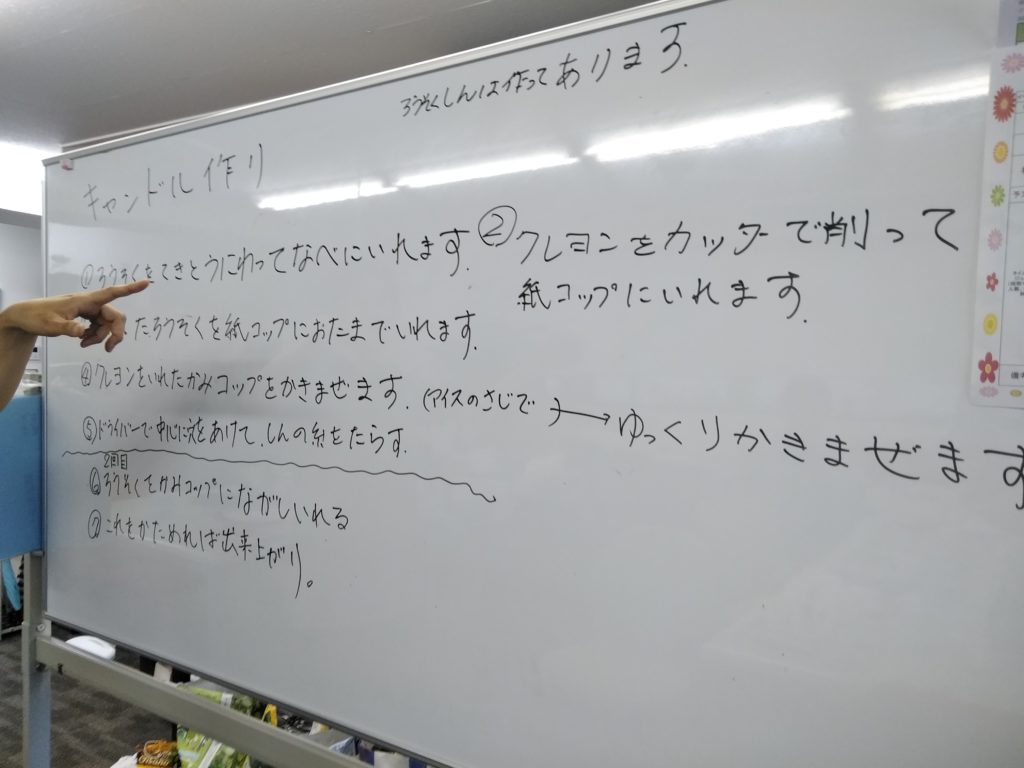 ろうそくしんは作ってあります.
キャンドル作り
①ろうそくをてきとうにわってなべにいれます.
②クレヨンをカッターで削って
紙コップにいれます.
たろうそくを紙コップにおたまでいれます.
④クレヨンをいれたかみコップをかきまぜます.(アイスのさじで)→ゆっくりかきまぜます
⑤ドライバーで中心に穴をあけて、しんの糸をたらす.
2回目
⑥ろうそくをかみコップにながしいれる
⑦これをかためれば出来上がり。